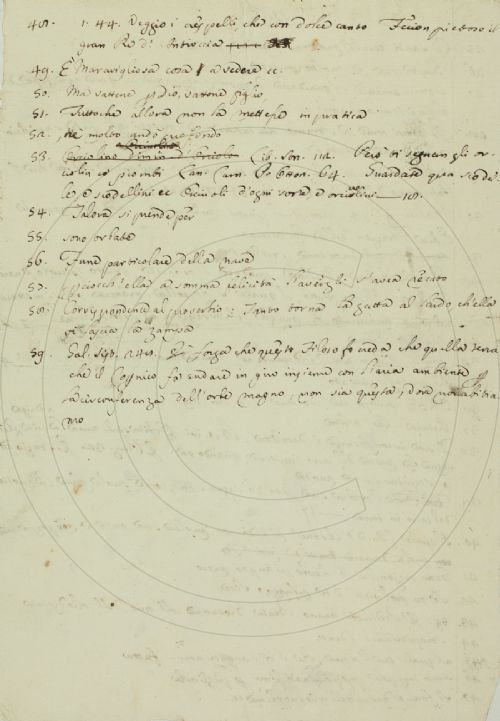 48. 1. 44. Veggio i crespelli, che con dolce canto Fecion pietoso il
gran Re di Antioccia
49. È Maravigliosa cosa a vedere ec.
50. Ma vattene pdio, vattone figlio
51. Tuttochè allora non la mettesse in pratica
52. molto andò
53. Lib. son. 112. Però ti seguon gli or-
ciolin co piombi Can. Carn. 64. Guardate qua scode-
le, e scodellini ec Orciuoli d'ogni sorte e orciolini 18.
54. Talora si prende per
55. sono sorbate
56. Fune particolare della nave
57. ella è somma felicità l'avergli
58. Corrispondente al proverbio: Tanto torna la gatta al lardo ch'ella
vi lascia la zampa
59. Gal. Sist. È forza che questi Filosofi creda che quella terra
che il Coppnico fa andare in giro insieme con l'aria ambiente p
la circonferenza dell'orbe magno, non sia questa, dove noi abitia
mo